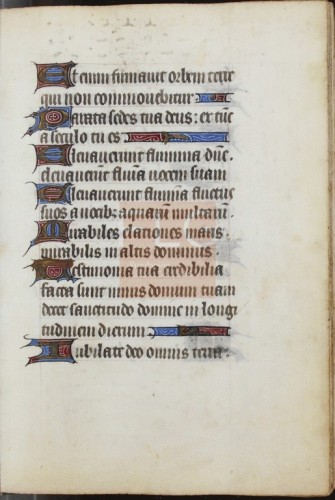 Et enim firmauit orbem terre
qui non commouebitur
Parata sedes tua deus : ex tūc
a seculo tu es
Eleuauerunt flumina dūe
eleuauerūt flūia uocem suam
Eleuauerunt flumīa fluctus
suos a uocibꝫ aquarū multarū .
Mirabiles elationes maris .
mirabilis in altis dominus .
Testimonia tua credibilia
facta sunt nimis domum tuam
decet sanctitudo domine in longi
tudinem dierum
Iubilate deo omnis terra .